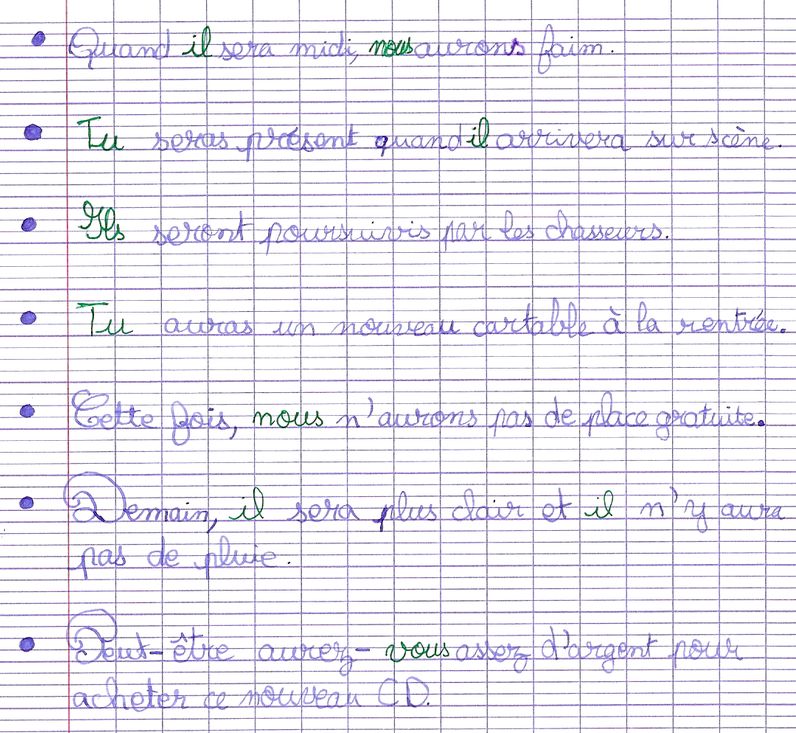 Quand il sera midi, nous aurons faim.
Tu seras présent quand il arrivera sur scène.
Ils seront poursuivis par les chasseurs.
Tu auras un nouveau cartable à la rentrée.
Cette fois, nous n'aurons pas de place gratuite.
Demain, il sera plus clair et il n'y aura
pas de pluie.
Peut-être aurez-vous assez d'argent pour
acheter ce nouveau CD.